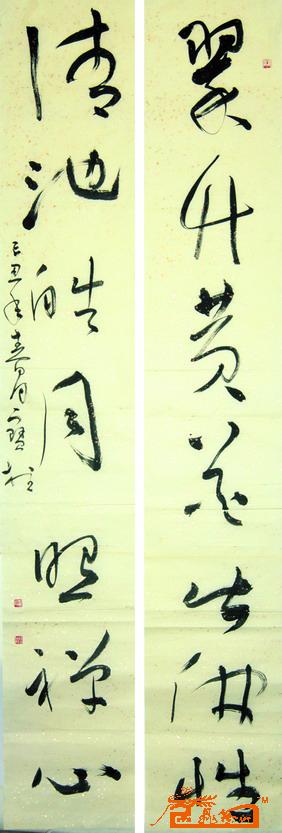 翠竹黄花皆佛性
清池皓月照禅心
己丑年春月